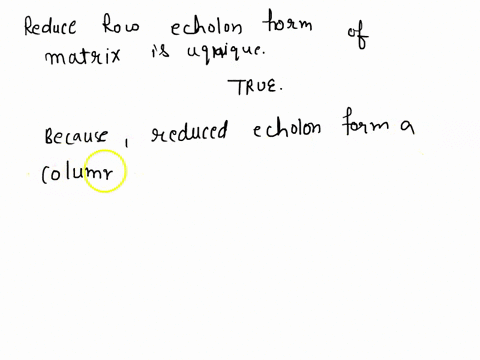 Reduce Row echolon form of
matrix is uqnique.
TRUE.
Because, reduced echolon form a
column